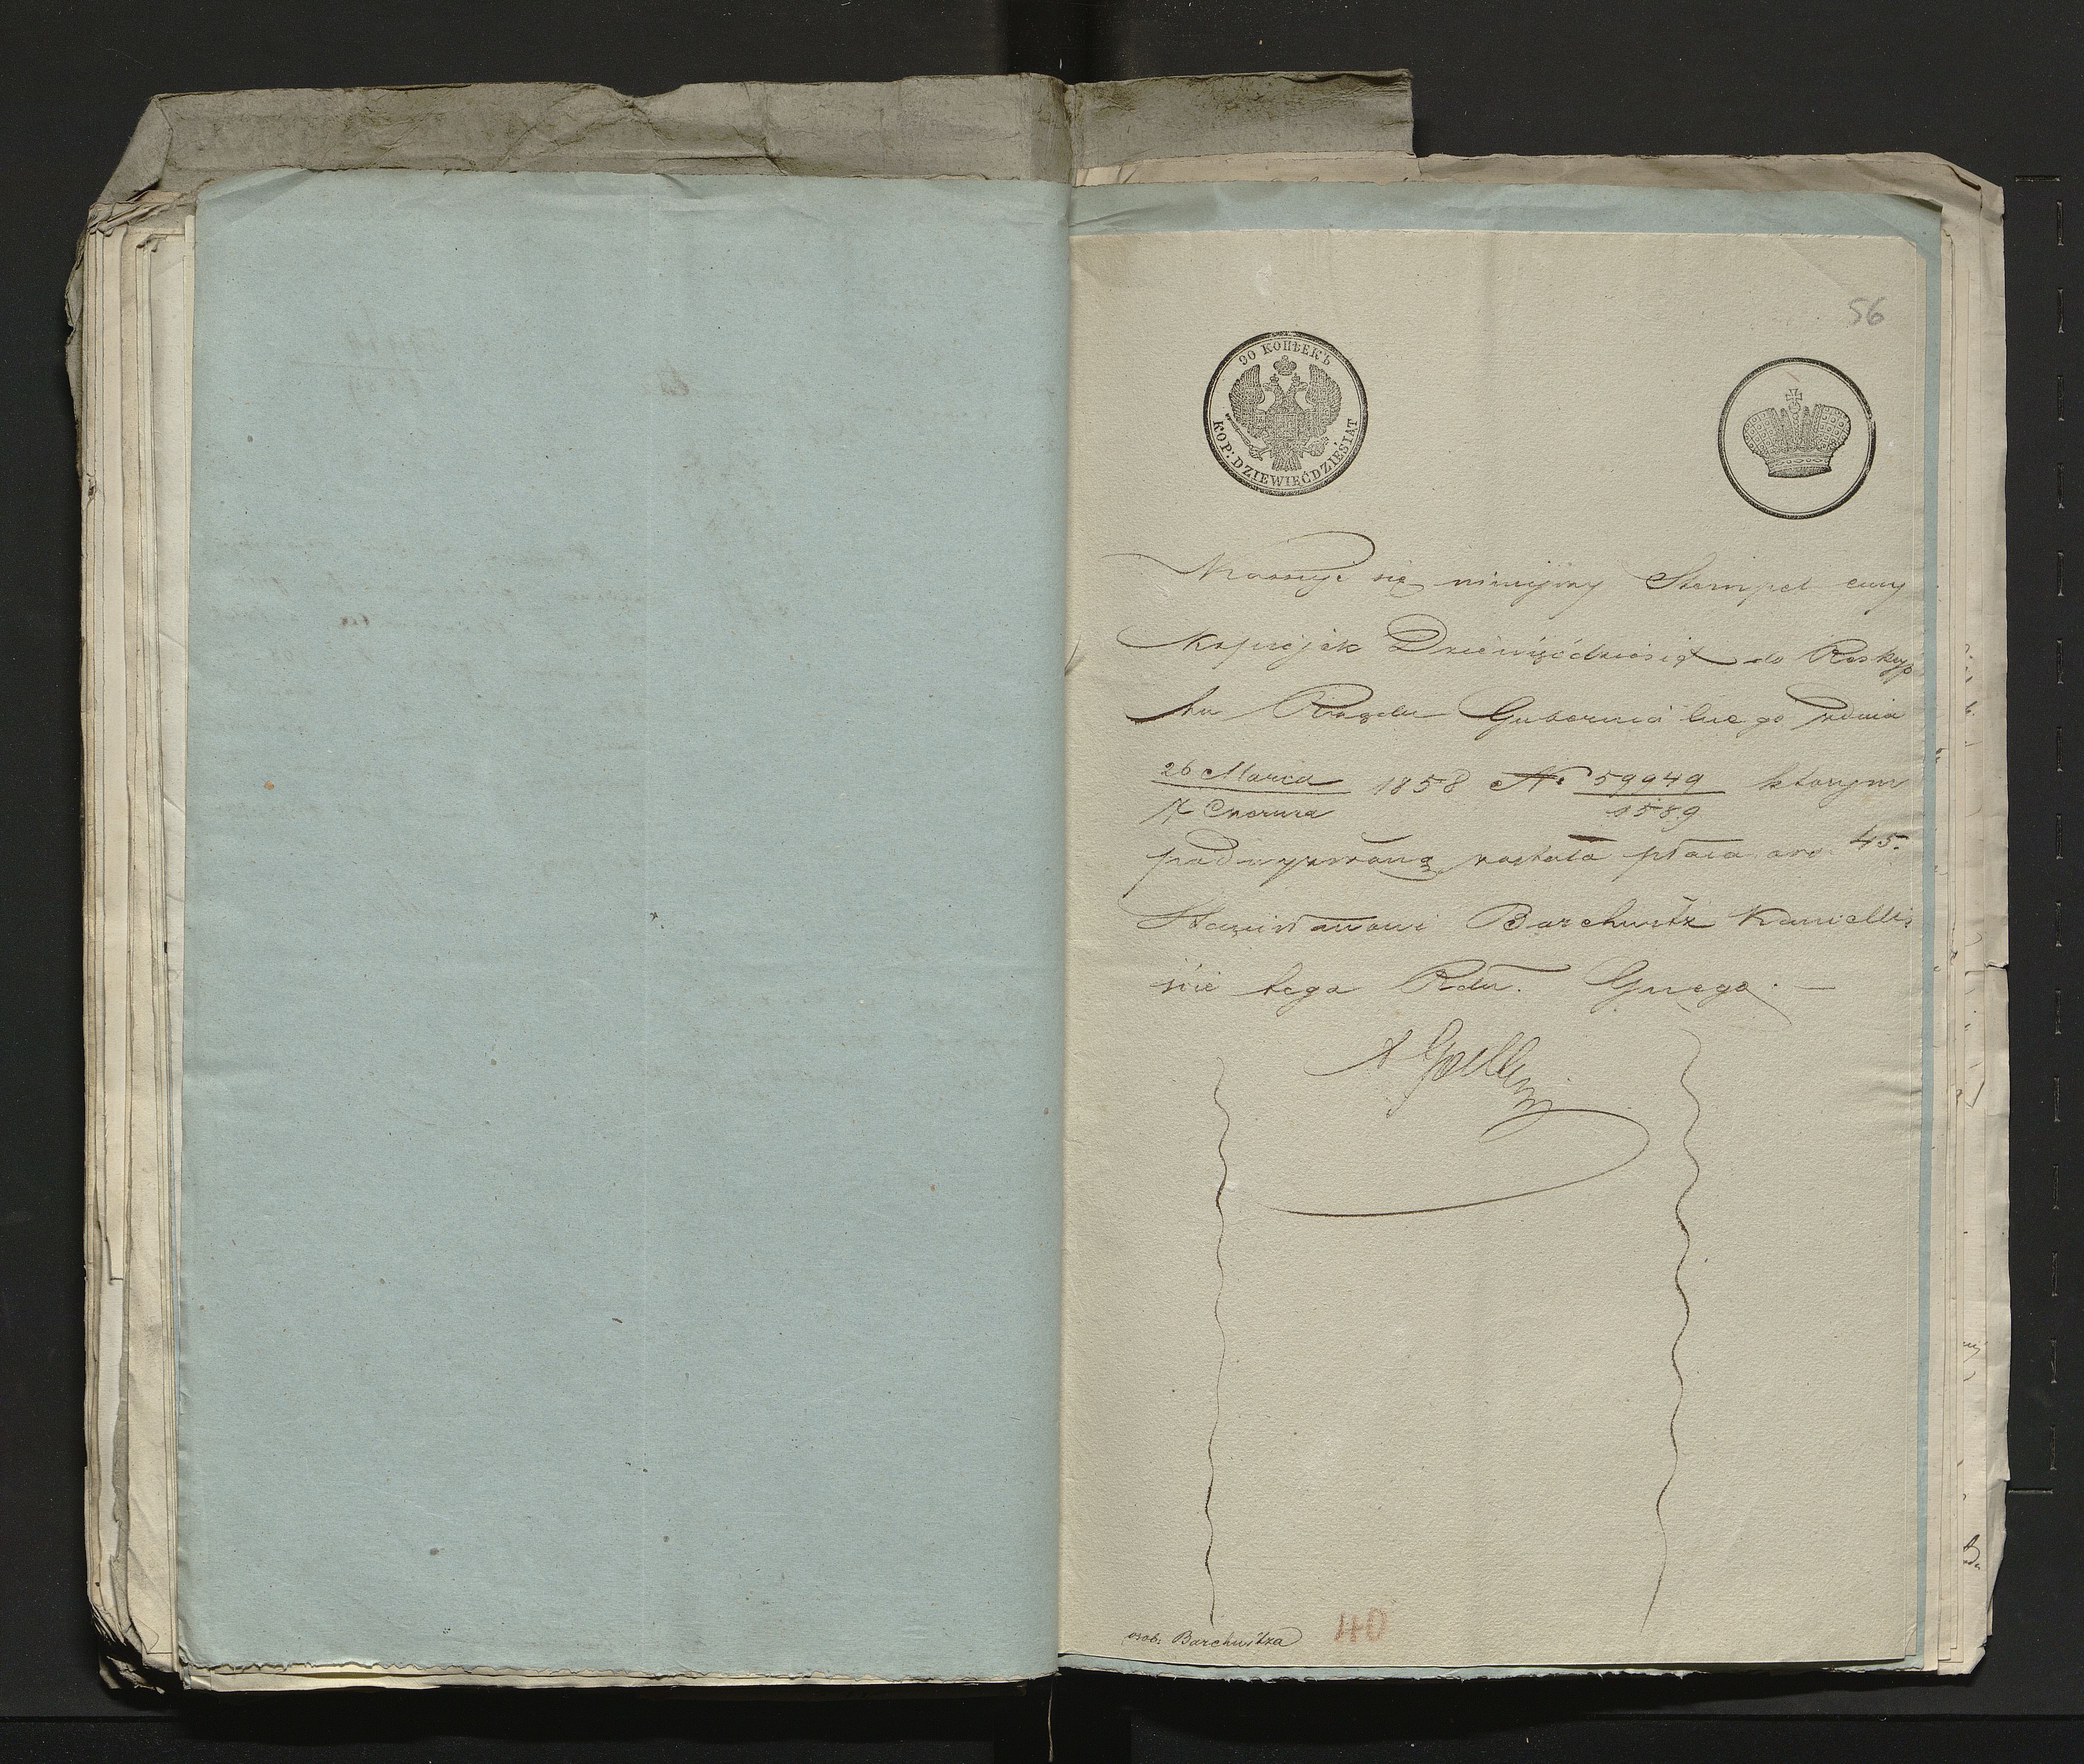 56
90 КОПѢЕКЪ
KOP: DZIEWIĘĆDZIESIĄT
Kassuje się niniejszy Stempel ceny
Kopiejek Dziewięćdziesiąt do Reskryp
tu Rządu Gubernialnego zdnia
26 Marca / 7 Czerwca 1858 No 59949 / 1589 którym
podwyższoną została płaca o rs 45.
Stanisławowi Barchwitz Kancelli
ście tego Rdu. Gnego. —
osob. Barchwitza
40